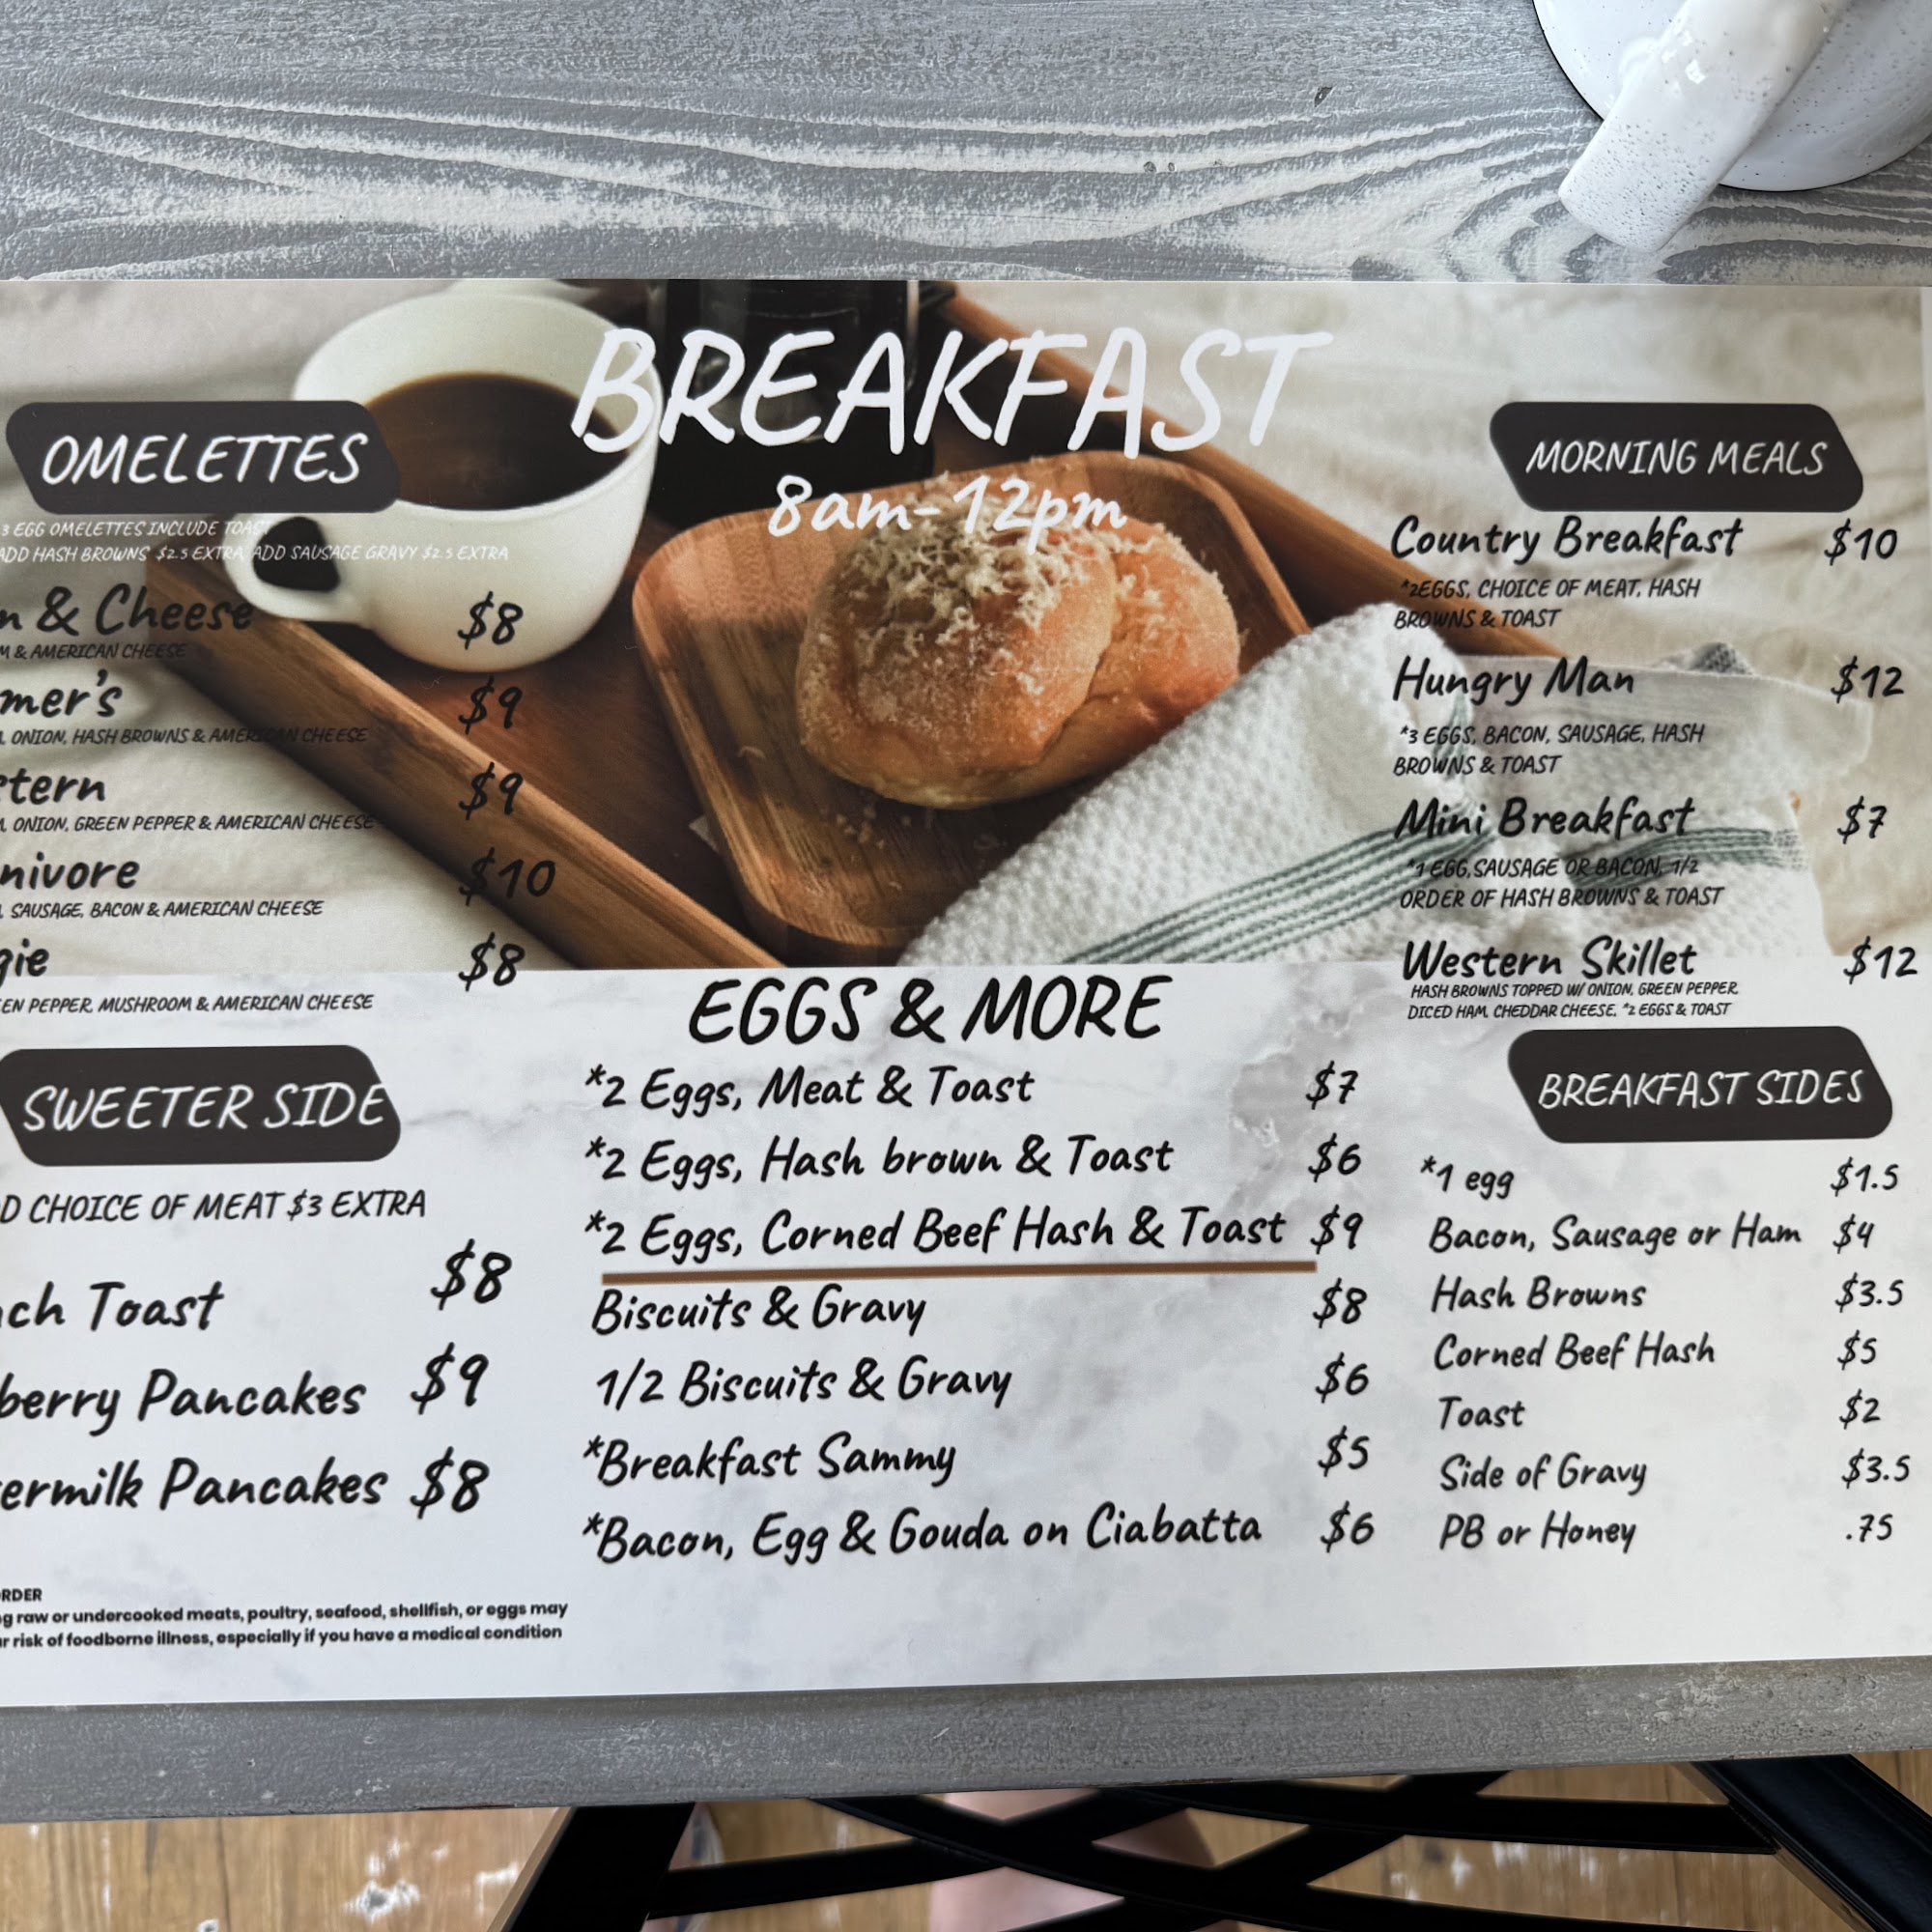 BREAKFAST
8am-12pm
OMELETTES
3 EGG OMELETTES INCLUDE TOAST
ADD HASH BROWNS $2.5 EXTRA, ADD SAUSAGE GRAVY $2.5 EXTRA
& Cheese $8
& AMERICAN CHEESE
mer's $9
ONION, HASH BROWNS & AMERICAN CHEESE
tern $9
ONION, GREEN PEPPER & AMERICAN CHEESE
nivore $10
SAUSAGE, BACON & AMERICAN CHEESE
gie $8
EN PEPPER, MUSHROOM & AMERICAN CHEESE
SWEETER SIDE
D CHOICE OF MEAT $3 EXTRA
ch Toast $8
berry Pancakes $9
ermilk Pancakes $8
RDER
g raw or undercooked meats, poultry, seafood, shellfish, or eggs may
r risk of foodborne illness, especially if you have a medical condition
EGGS & MORE
*2 Eggs, Meat & Toast $7
*2 Eggs, Hash brown & Toast $6
*2 Eggs, Corned Beef Hash & Toast $9
Biscuits & Gravy $8
1/2 Biscuits & Gravy $6
*Breakfast Sammy $5
*Bacon, Egg & Gouda on Ciabatta $6
MORNING MEALS
Country Breakfast $10
*2EGGS, CHOICE OF MEAT, HASH
BROWNS & TOAST
Hungry Man $12
*3 EGGS, BACON, SAUSAGE, HASH
BROWNS & TOAST
Mini Breakfast $7
*1 EGG, SAUSAGE OR BACON, 1/2
ORDER OF HASH BROWNS & TOAST
Western Skillet $12
HASH BROWNS TOPPED W/ ONION, GREEN PEPPER,
DICED HAM, CHEDDAR CHEESE, *2 EGGS & TOAST
BREAKFAST SIDES
*1 egg $1.5
Bacon, Sausage or Ham $4
Hash Browns $3.5
Corned Beef Hash $5
Toast $2
Side of Gravy $3.5
PB or Honey .75